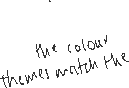 the colour
themes match the